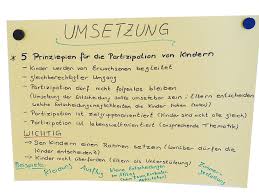 UMSETZUNG
* 5 Prinziepien für die Partizipation von Kindern
- Kinder werden von Erwachsenen begleitet
- gleichberechtigter Umgang
- Partizipation darf nicht folgenlos bleiben
(Umsetzung der Entscheidung sollte umsetzbar sein; Eltern entscheiden
welche Entscheidungsmöglichkeiten die Kinder haben)
- Partizipation ist zielgruppenorientiert (Kinder sind nicht alle gleich)
- Partizipation ist lebensweltorientiert (ansprechende Thematik)
WICHTIG
→ Den Kindern einen Rahmen setzen (worüber dürfen die
Kinder entscheiden?)
→ Kinder nicht überfordern (Eltern als Unterstützung)
Beispiele: